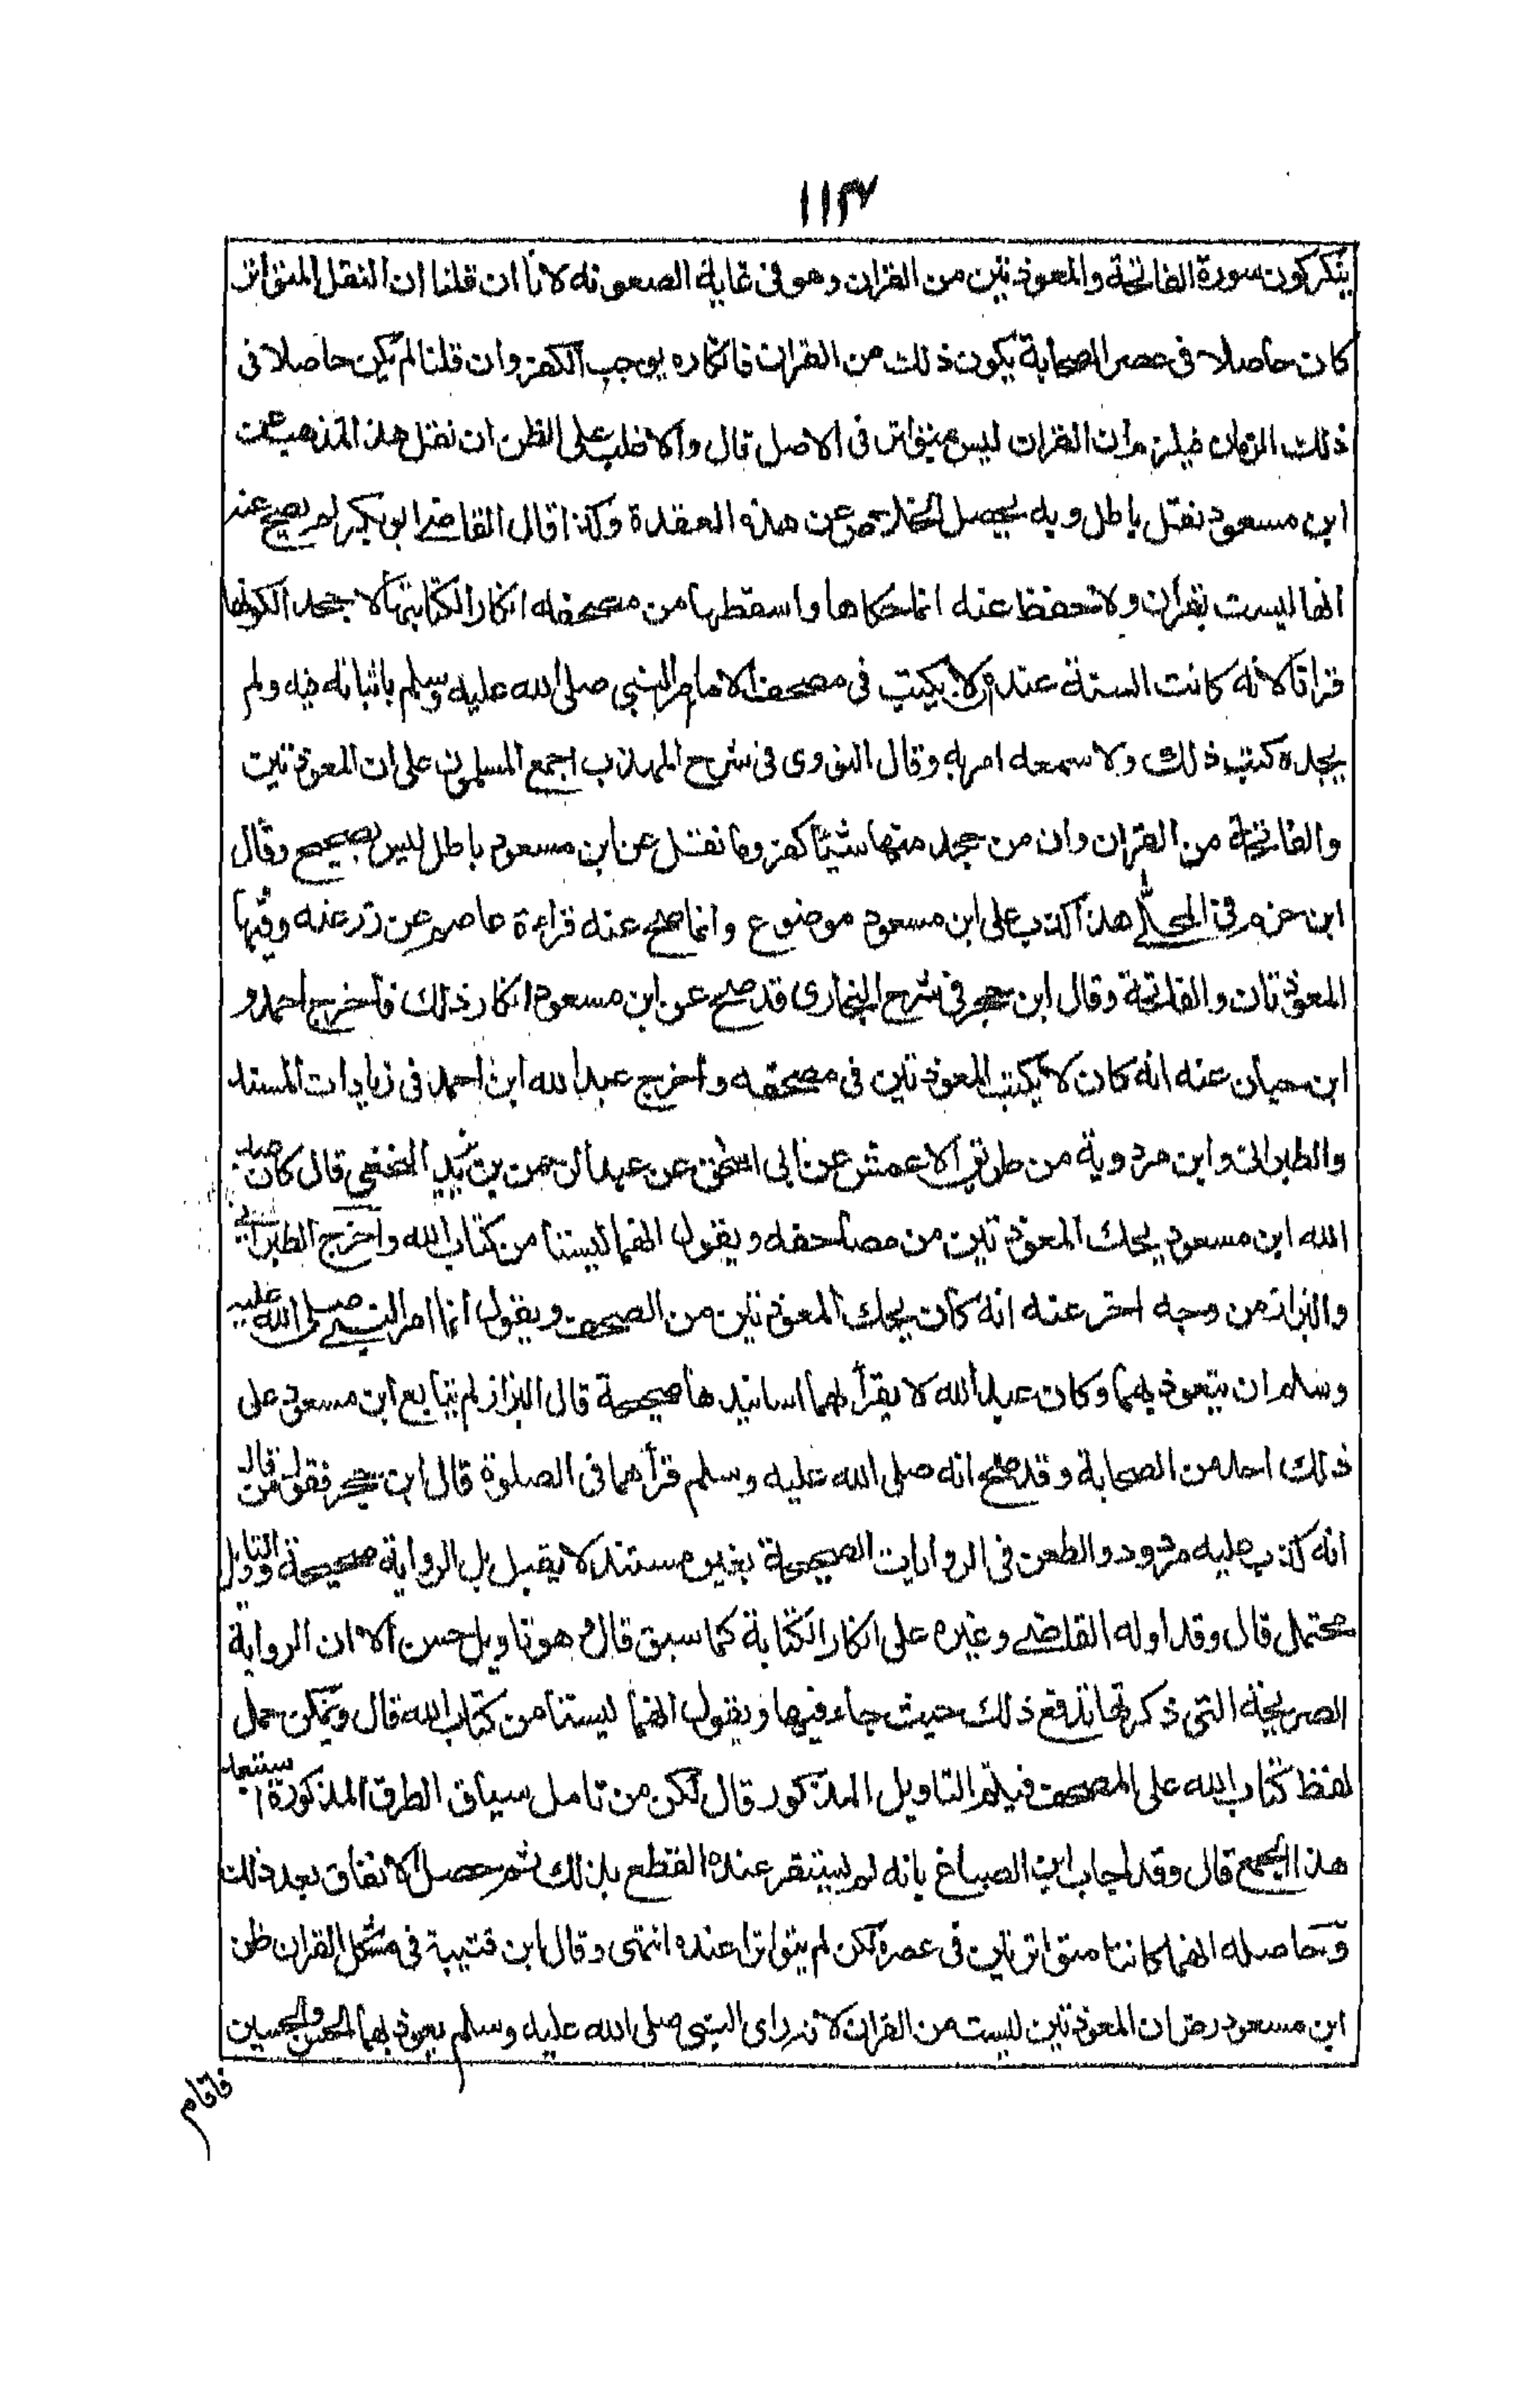 ١١٣
ينكر كون سورة الفاتحة والمعوذتين من القران وهو فى غاية الصعوبه لانا ان قلنا ان النقل المتواتر
كان حاصلا فى عصر الصحابة يكون ذلك من القران فانكاره يوجب الكفر وان قلنا لم يكن حاصلا فى
ذلك الزمان فيلزم ان القران ليس بمتواتر فى الاصل قال والاغلب على الظن ان نقل هذا المذهب عن
ابن مسعود نقل باطل وبه يحصل الخلاص عن هذه العقدة وكذا قال القاضى ابو بكر لم يصح عنه
انها ليست بقران ولا تحفظ عنه انما حكاها واسقطها من مصحفه انكارا لكتابتها لا جحدا لكونها
قرانا لانه كانت السنة عنده ان لا يكتب فى مصحف الا ما امر النبي صلى الله عليه وسلم باثباته فيه ولم
يجده كتب ذلك ولا سمعه امر به وقال النووى فى شرح المهذب اجمع المسلمون على ان المعوذتين
والفاتحة من القران وان من جحد منها شيئا كفر وما نقل عن ابن مسعود باطل ليس بصحيح وقال
ابن حزم فى المحلى هذا كذب على ابن مسعود موضوع وانما صح عنه قراءة عاصم عن زر عنه وفيها
المعوذتان والفاتحة وقال ابن حجر فى شرح البخارى قد صح عن ابن مسعود انكار ذلك فاخرج احمد و
ابن حبان عنه انه كان لا يكتب المعوذتين فى مصحفه واخرج عبد الله ابن احمد فى زيادات المسند
والطبرانى وابن مردوية من طريق الاعمش عن ابى اسحق عن عبد الرحمن بن يزيد النخعى قال كان عبد
الله ابن مسعود يحك المعوذتين من مصاحفه ويقول انهما ليستا من كتاب الله واخرج الطبرانى
والبزار من وجه اخر عنه انه كان يحك المعوذتين من المصحف ويقول انما امر النبى صلى الله عليه
وسلم ان يتعوذ بهما وكان عبد الله لا يقرأ بهما اسانيدها صحيحة قال البزار لم يتابع ابن مسعود على
ذلك احد من الصحابة وقد صح انه صلى الله عليه وسلم قرأ بهما فى الصلوة قال ابن حجر فقول من قال
انه كذب عليه مردود والطعن فى الروايات الصحيحة بغير مستند لا يقبل بل الرواية صحيحة والتاويل
محتمل قال وقد اوله القاضى وغيره على انكار الكتابة كما سبق قال وهو تاويل حسن الا ان الرواية
الصريحة التى ذكرتها تدفع ذلك حيث جاء فيها ويقول انهما ليستا من كتاب الله قال ويمكن حمل
لفظ كتاب الله على المصحف فيتم التاويل المذكور قال لكن من تامل سياق الطرق المذكورة استبعد
هذا الجمع قال وقد اجاب ابن الصباغ بانه لم يستقر عنده القطع بذلك ثم حصل الاتفاق بعد ذلك
وحاصله انهما كانتا متواترتين فى عصره لكن لم يتواترا عنده انتهى وقال ابن قتيبة فى مشكل القران ظن
ابن مسعود رض ان المعوذتين ليست من القران لانه راى النبى صلى الله عليه وسلم يعوذ بهما الحسن والحسين
فاقام